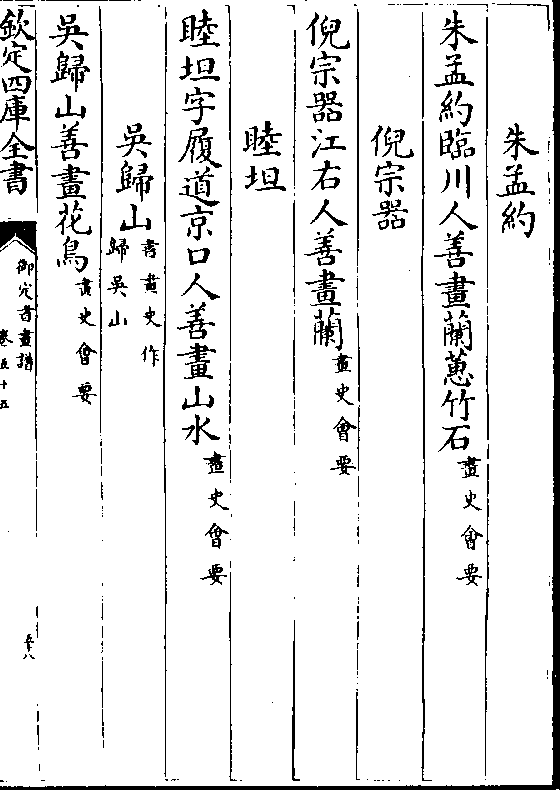 朱孟約
朱孟約臨川人善畫蘭蕙竹石畫史會要
倪宗器
倪宗器江右人善畫蘭畫史會要
睦坦
睦坦字履道京口人善畫山水畫史會要
吳歸山書畫史作歸吳山
吳歸山善畫花鳥畫史會要
欽定四庫全書
御定書畫譜
卷五十五
五十八